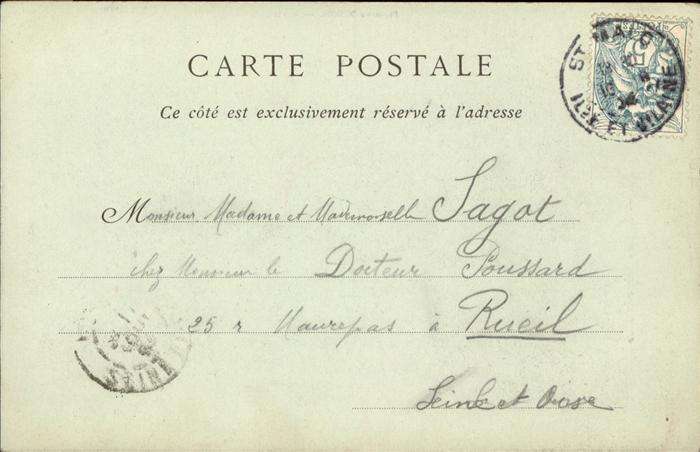 CARTE POSTALE
Ce côté est exclusivement réservé à l'adresse
ST MALO
ILLE ET VILAINE
Monsieur Madame et Mademoiselle Sagot
chez Monsieur le Docteur Poussard
25 r Maurepas à Rueil
Seine et Oise
SEINE